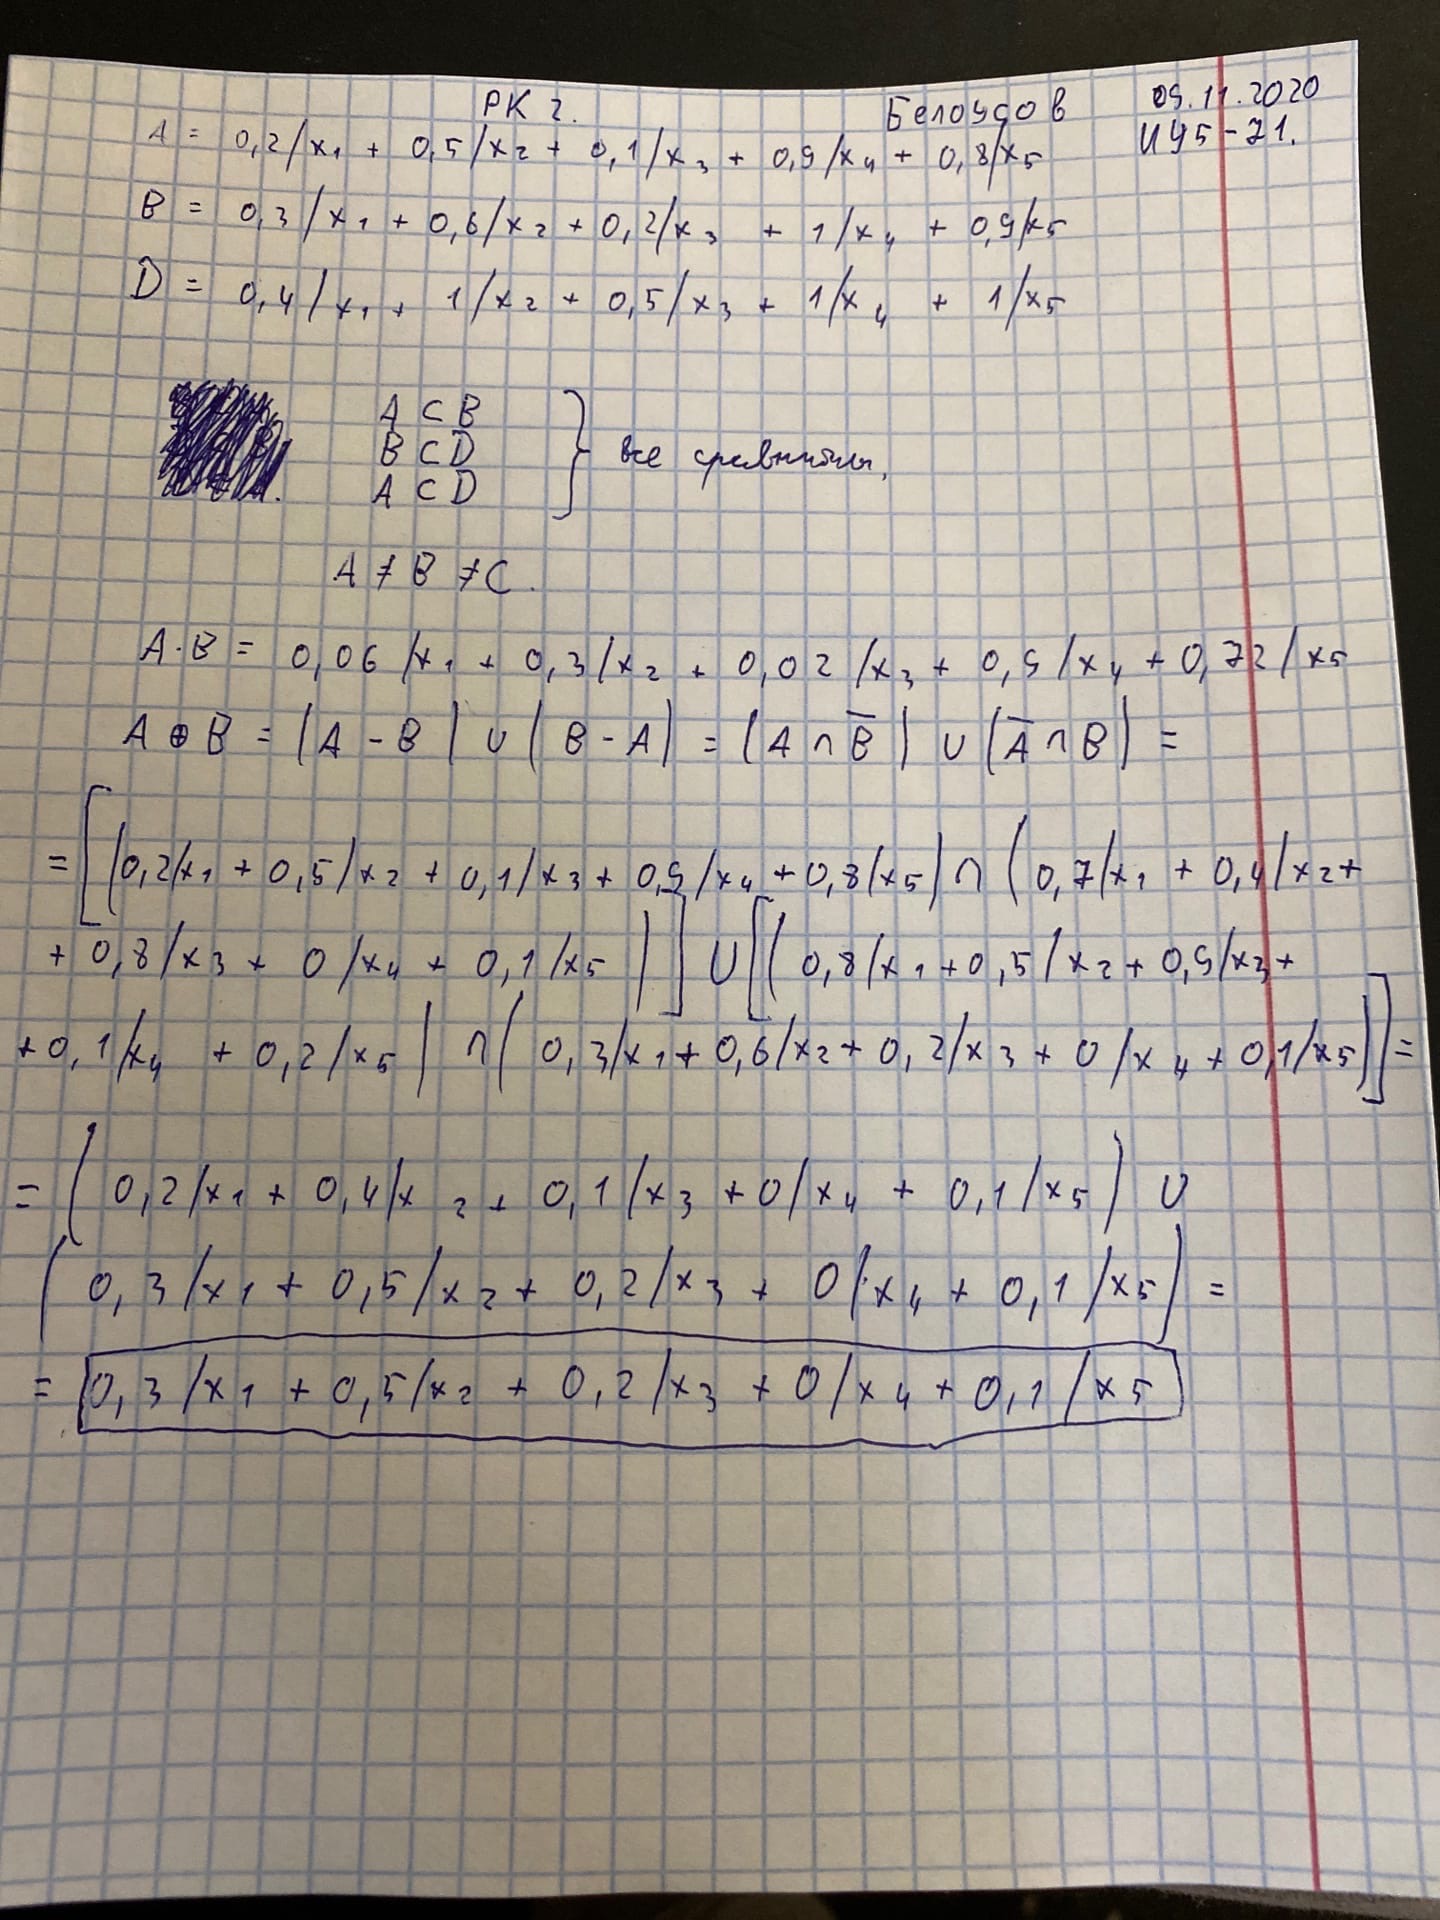 РК 2. Белоусов 09.11.2020
ИУ5-71.
A = 0,2/x₁ + 0,5/x₂ + 0,1/x₃ + 0,9/x₄ + 0,8/x₅
B = 0,3/x₁ + 0,6/x₂ + 0,2/x₃ + 1/x₄ + 0,9/x₅
D = 0,4/x₁ + 1/x₂ + 0,5/x₃ + 1/x₄ + 1/x₅
A ⊂ B
B ⊂ D } все сравнимы.
A ⊂ D
A ≠ B ≠ C.
A·B = 0,06/x₁ + 0,3/x₂ + 0,02/x₃ + 0,9/x₄ + 0,72/x₅
A ⊕ B = (A - B) ∪ (B - A) = (A ∩ B̅) ∪ (A̅ ∩ B) =
= [(0,2/x₁ + 0,5/x₂ + 0,1/x₃ + 0,9/x₄ + 0,8/x₅) ∩ (0,7/x₁ + 0,4/x₂ +
+ 0,8/x₃ + 0/x₄ + 0,1/x₅)] ∪ [(0,8/x₁ + 0,5/x₂ + 0,9/x₃ +
+ 0,1/x₄ + 0,2/x₅) ∩ (0,3/x₁ + 0,6/x₂ + 0,2/x₃ + 0/x₄ + 0,1/x₅)] =
= (0,2/x₁ + 0,4/x₂ + 0,1/x₃ + 0/x₄ + 0,1/x₅) ∪
(0,3/x₁ + 0,5/x₂ + 0,2/x₃ + 0/x₄ + 0,1/x₅) =
= 0,3/x₁ + 0,5/x₂ + 0,2/x₃ + 0/x₄ + 0,1/x₅